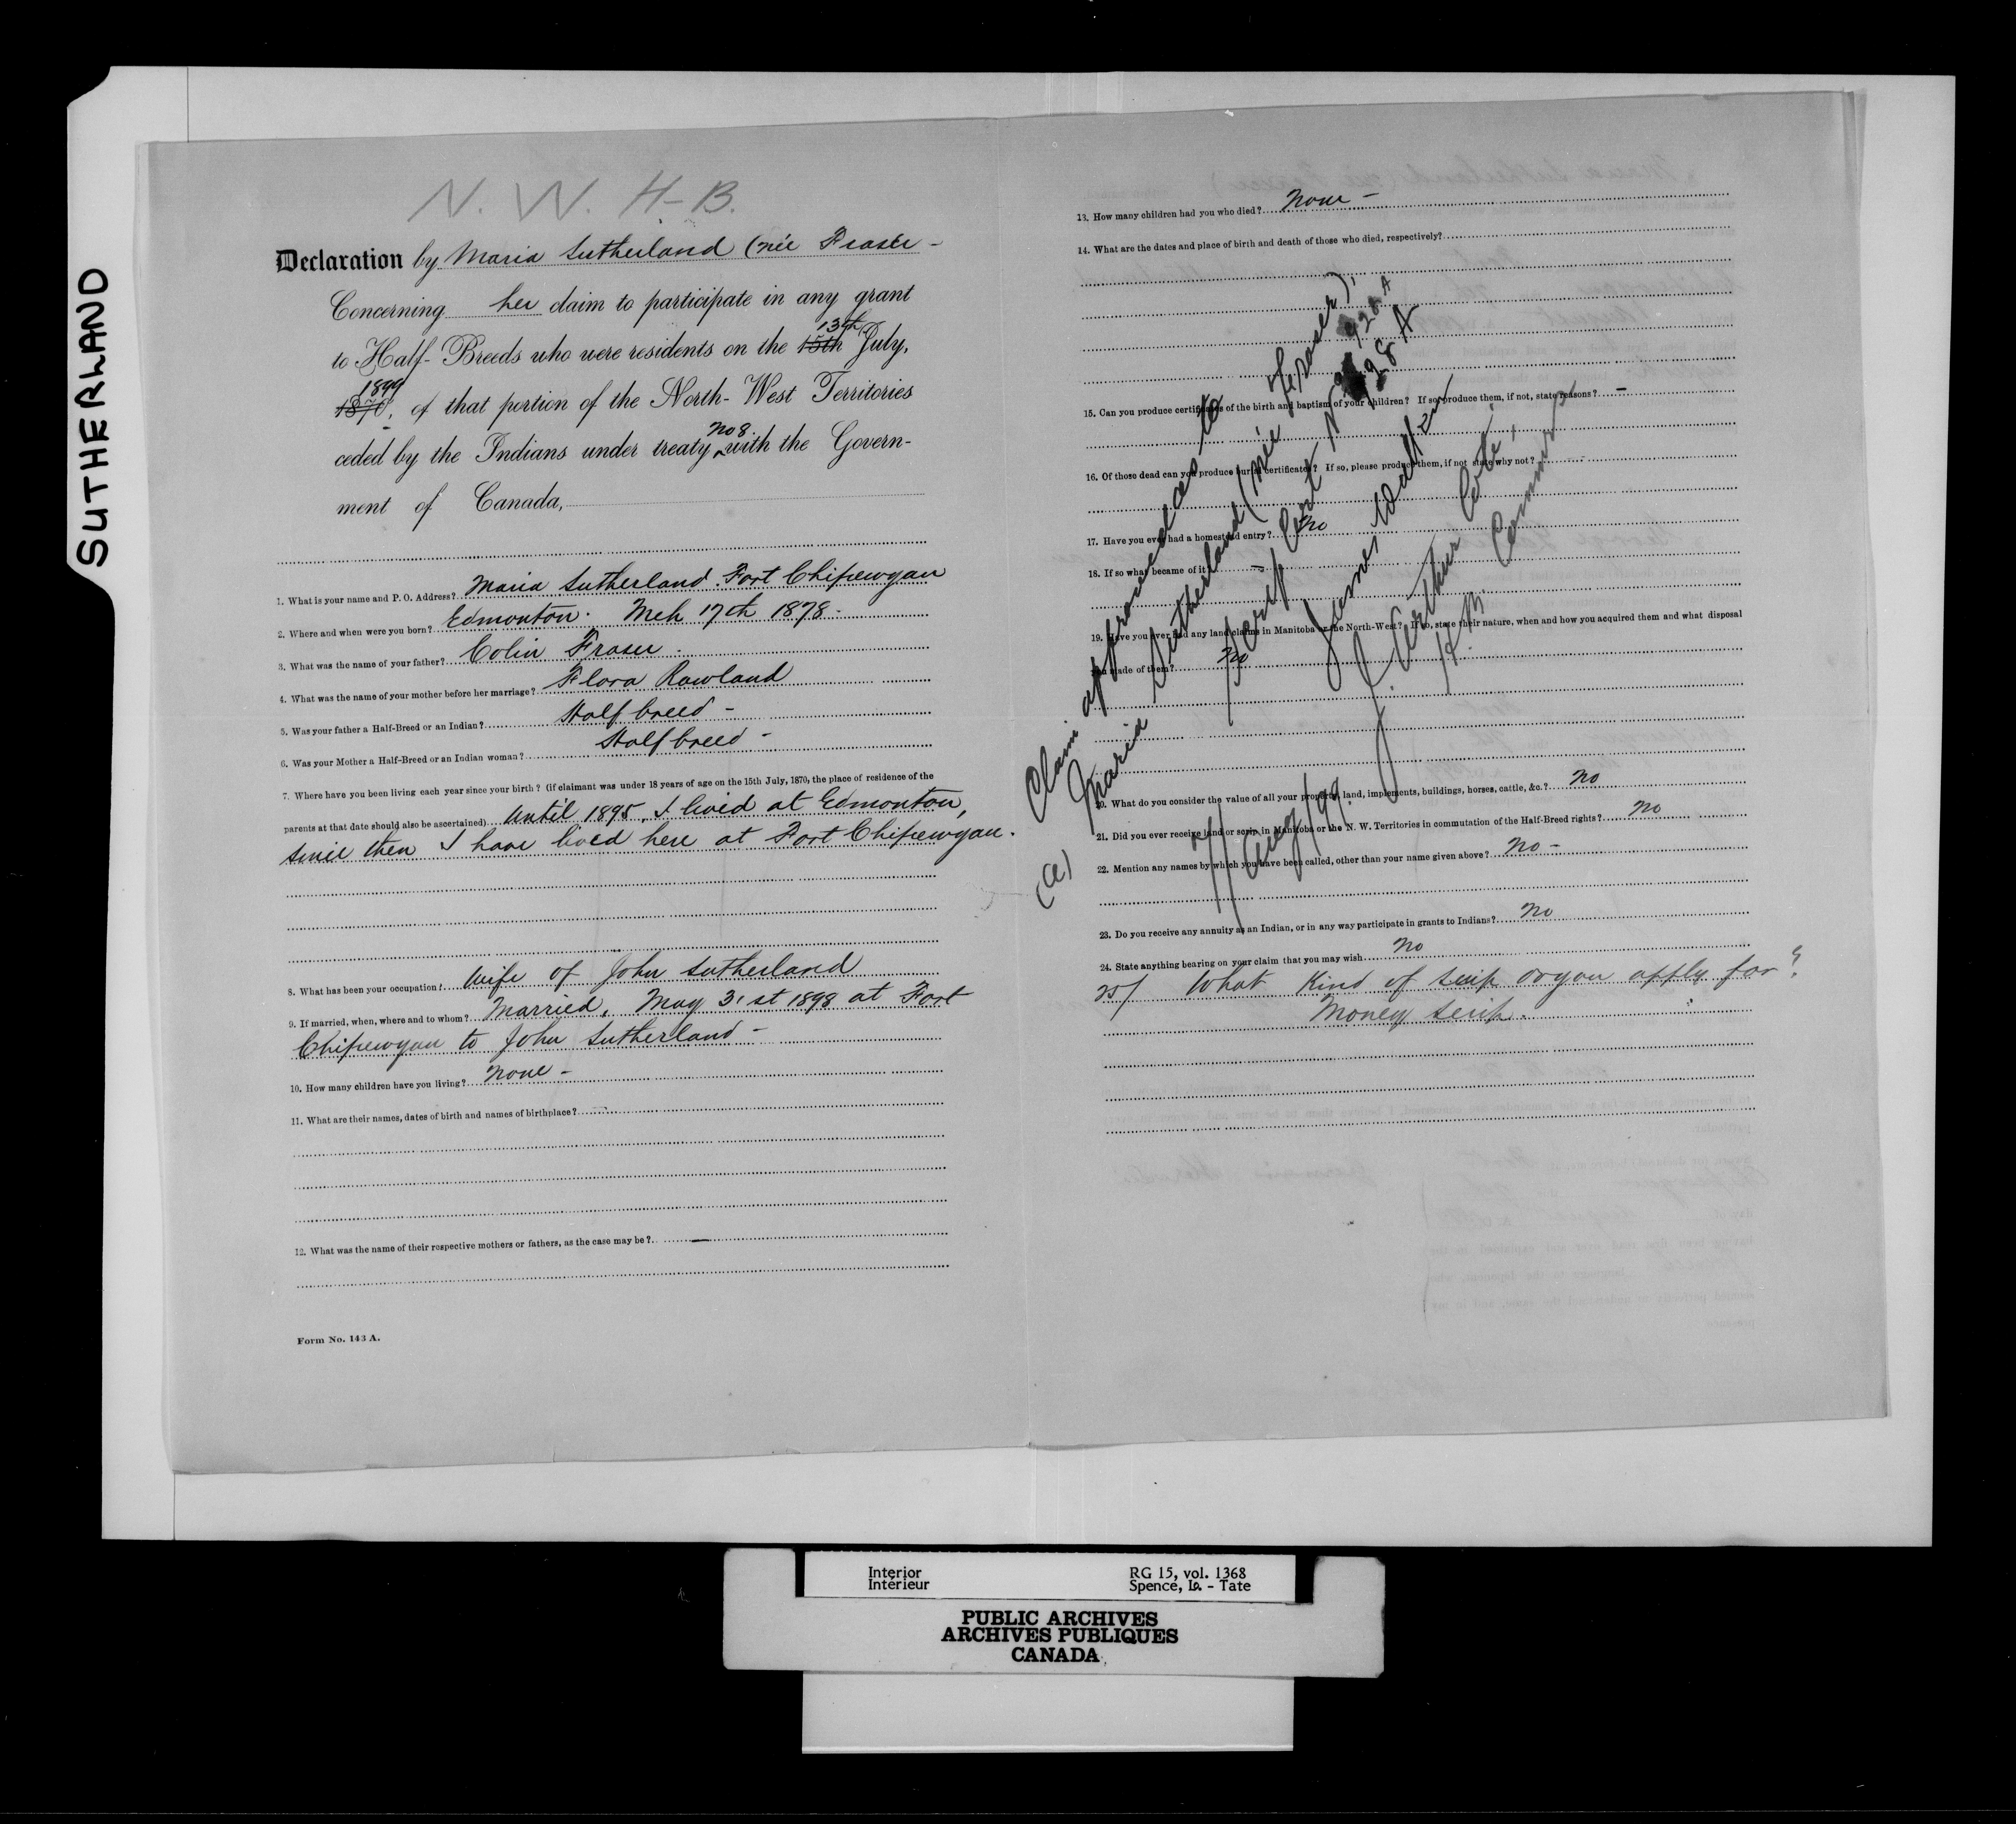 SUTHERLAND
N. W. H-B.
Declaration by Maria Sutherland (née Fraser -
Concerning her claim to participate in any grant
to Half-Breeds who were residents on the 15th 13th July,
1870, 1899 of that portion of the North-West Territories
ceded by the Indians under treaty no 8. with the Govern-
ment of Canada,
1. What is your name and P. O. Address? Maria Sutherland. Fort Chipewyan
2. Where and when were you born? Edmonton. Mch 17th 1878.
3. What was the name of your father? Colin Fraser.
4. What was the name of your mother before her marriage? Flora Rowland
5. Was your father a Half-Breed or an Indian? Half breed -
6. Was your Mother a Half-Breed or an Indian woman? Half breed -
7. Where have you been living each year since your birth? (if claimant was under 18 years of age on the 15th July, 1870, the place of residence of the
parents at that date should also be ascertained) Until 1895, I lived at Edmonton,
since then I have lived here at Fort Chipewyan.
8. What has been your occupation? Wife of John Sutherland
9. If married, when, where and to whom? Married, May 31st 1898 at Fort
Chipewyan to John Sutherland -
10. How many children have you living? None -
11. What are their names, dates of birth and names of birthplace?
12. What was the name of their respective mothers or fathers, as the case may be? -
Form No. 143 A.
13. How many children had you who died? None -
14. What are the dates and place of birth and death of those who died, respectively?
15. Can you produce certificates of the birth and baptism of your children? If so, produce them, if not, state reasons? -
16. Of those dead can you produce burial certificates? If so, please produce them, if not state why not?
17. Have you ever had a homestead entry? No
18. If so what became of it?
19. Have you ever had any land claims in Manitoba or the North-West? If so, state their nature, when and how you acquired them and what disposal
you made of them? No
20. What do you consider the value of all your property, land, implements, buildings, horses, cattle, &c.? No
21. Did you ever receive land or scrip in Manitoba or the N. W. Territories in commutation of the Half-Breed rights? No
22. Mention any names by which you have been called, other than your name given above? No -
23. Do you receive any annuity as an Indian, or in any way participate in grants to Indians? No
24. State anything bearing on your claim that you may wish No
25/ What kind of scrip do you apply for?
Money scrip.
(a) Claim approved as to
Maria Sutherland (née Fraser),
Scrip Cert No 928 A
928 A
James Walker
J. Arthur Coté,
H. B. Commrs
Aug/99.
Interior
Intérieur
RG 15, vol. 1368
Spence, Is. - Tate
PUBLIC ARCHIVES
ARCHIVES PUBLIQUES
CANADA